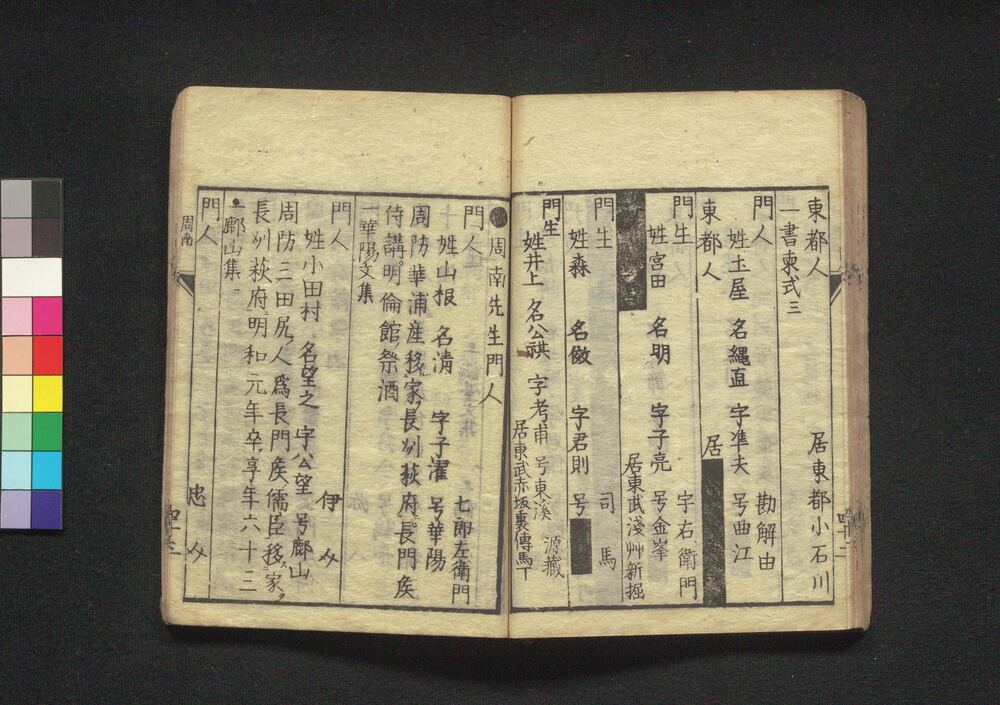 東都人 居東都小石川
一書柬式三
門人 勘解由
姓土屋 名縄直 字準夫 号曲江
東都人 居
門生 字右衛門
姓宮田 名明 字子亮 号金峯
居東武淺艸新掘
門生 司馬
姓森 名倣 字君則 号
門生 源藏
姓井上 名公祺 字考甫 号東溪
居東武赤坂裏傳馬丁
周南先生門人
門人 七郎左衛門
姓山根 名清 字子濯 号華陽
周防華浦産移家長刕萩府長門矦
侍講明倫館祭酒
一華陽文集
門人 伊
姓小田村 名望之 字公望 号鄜山
周防三田尻人為長門矦儒臣移家
長刕萩府明和元年卒享年六十二
一鄜山集
門人 忠
周南
四十二